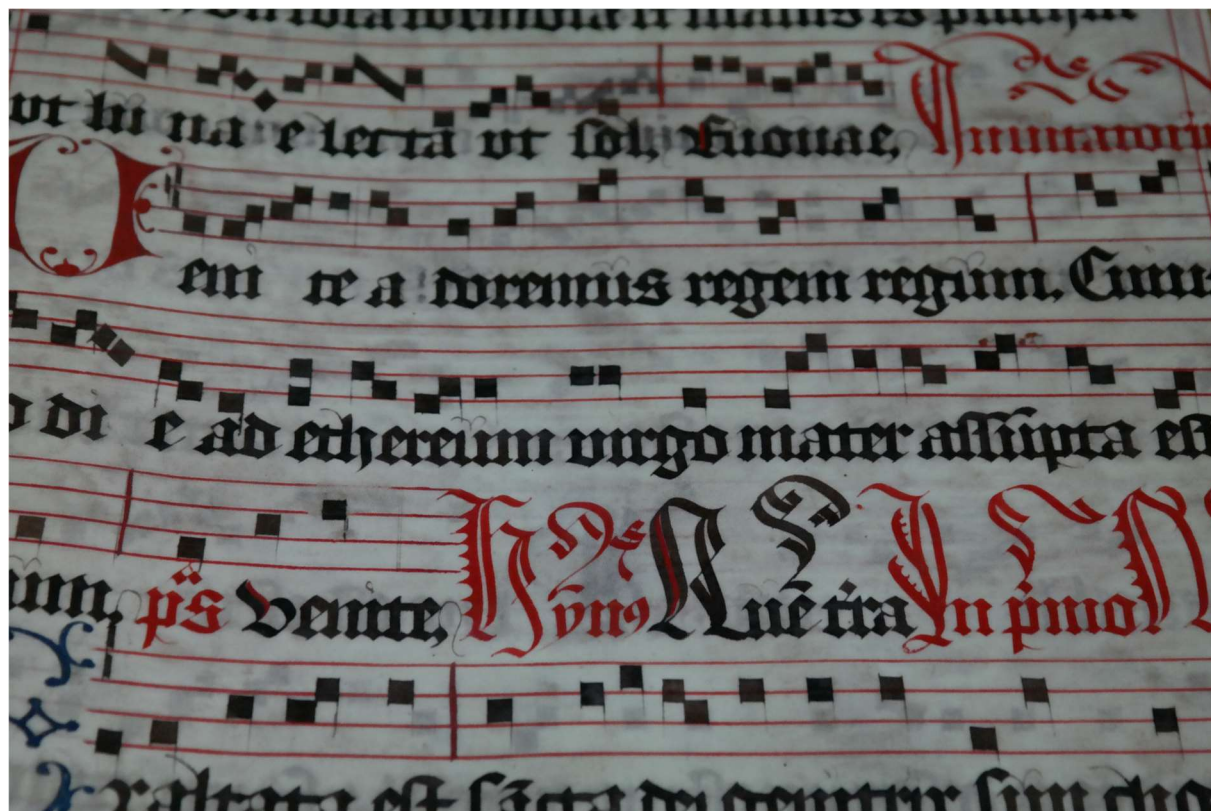 ut lu na e lecta ut sol, Euouae, Inuitatoriu
Uem te a doremus regem regum, Cuiu
o di e ad ethereum uirgo mater assupta est
um, ps Uenite, Hymn9 Quē tr̄ra In pͥmo N
Exaltata est sācta dei genitrix sup cho